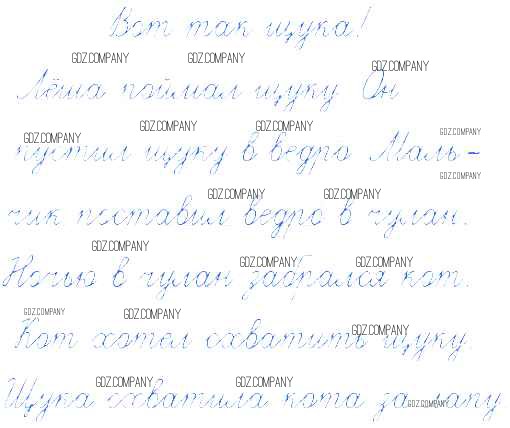 Вот так щука!
GDZ.COMPANY GDZ.COMPANY GDZ.COMPANY
Лёша поймал щуку Он
GDZ.COMPANY GDZ.COMPANY GDZ.COMPANY GDZ.COMPANY
пустил щуку в ведро Маль-
GDZ.COMPANY GDZ.COMPANY GDZ.COMPANY
чик поставил ведро в чулан.
GDZ.COMPANY GDZ.COMPANY GDZ.COMPANY
Ночью в чулан забрался кот.
GDZ.COMPANY GDZ.COMPANY GDZ.COMPANY
Кот хотел схватить щуку.
GDZ.COMPANY GDZ.COMPANY GDZ.COMPANY
Щука схватила кота за лапу